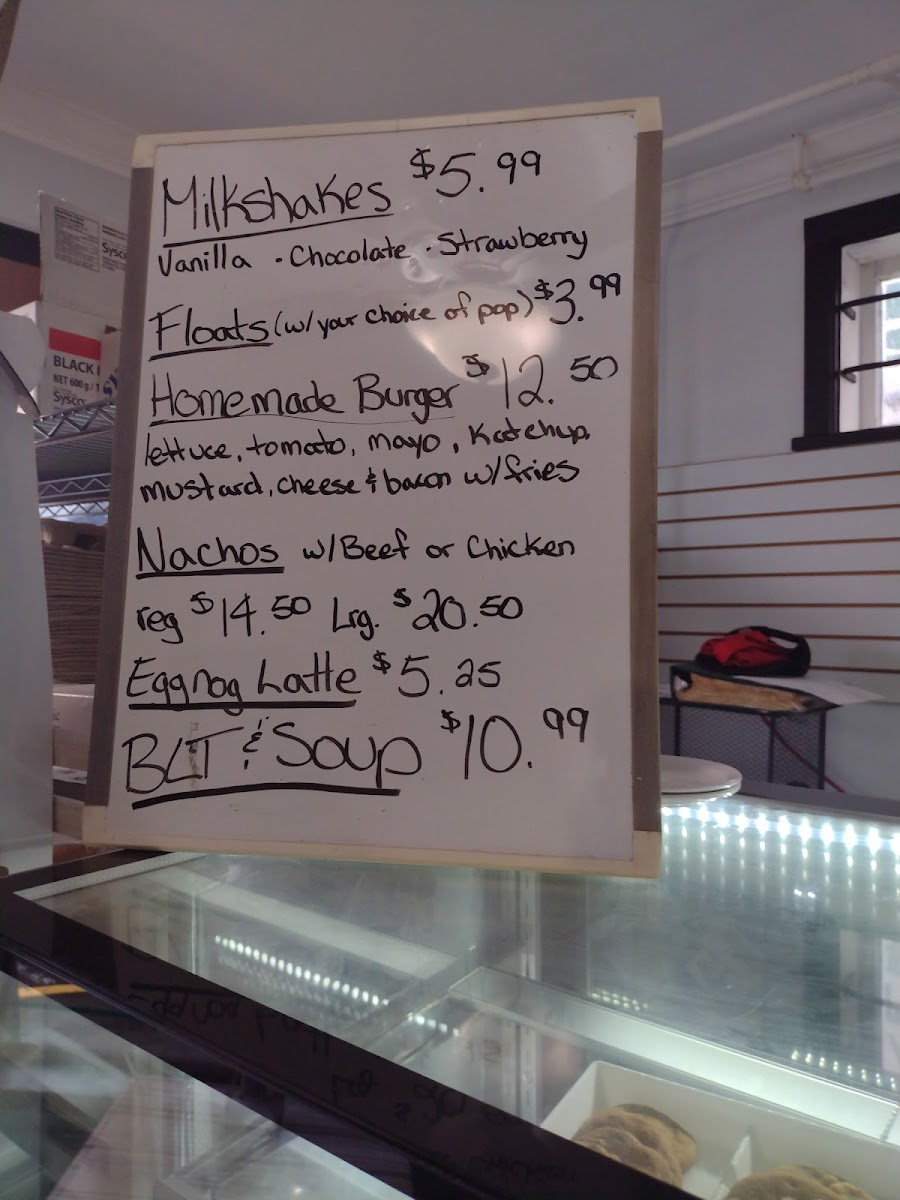 Milkshakes $5.99
Vanilla · Chocolate · Strawberry
Floats (w/ your choice of pop) $3.99
Homemade Burger $12.50
lettuce, tomato, mayo, Ketchup
mustard, cheese & bacon w/ fries
Nachos w/ Beef or Chicken
reg $14.50 Lrg. $20.50
Eggnog Latte $5.25
BLT & Soup $10.99
Sysco
BLACK
NET 600 g / 1
Sysco